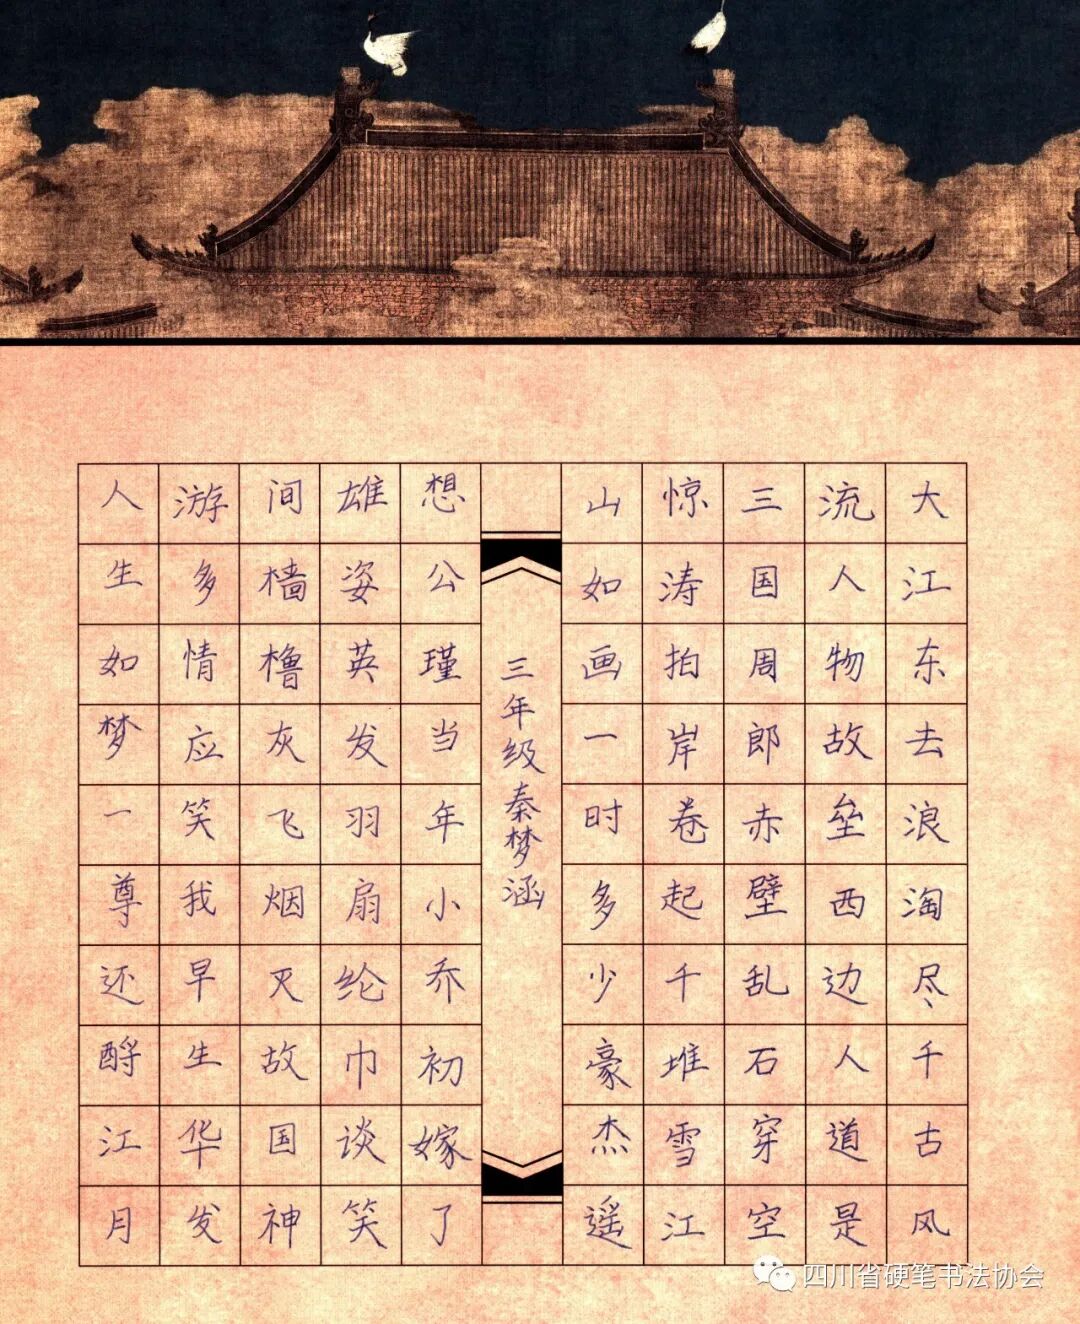 大江东去浪淘尽千古风
流人物故垒西边人道是
三国周郎赤壁乱石穿空
惊涛拍岸卷起千堆雪江
山如画一时多少豪杰遥
三年级秦梦涵
想公瑾当年小乔初嫁了
雄姿英发羽扇纶巾谈笑
间樯橹灰飞烟灭故国神
游多情应笑我早生华发
人生如梦一尊还酹江月
四川省硬笔书法协会